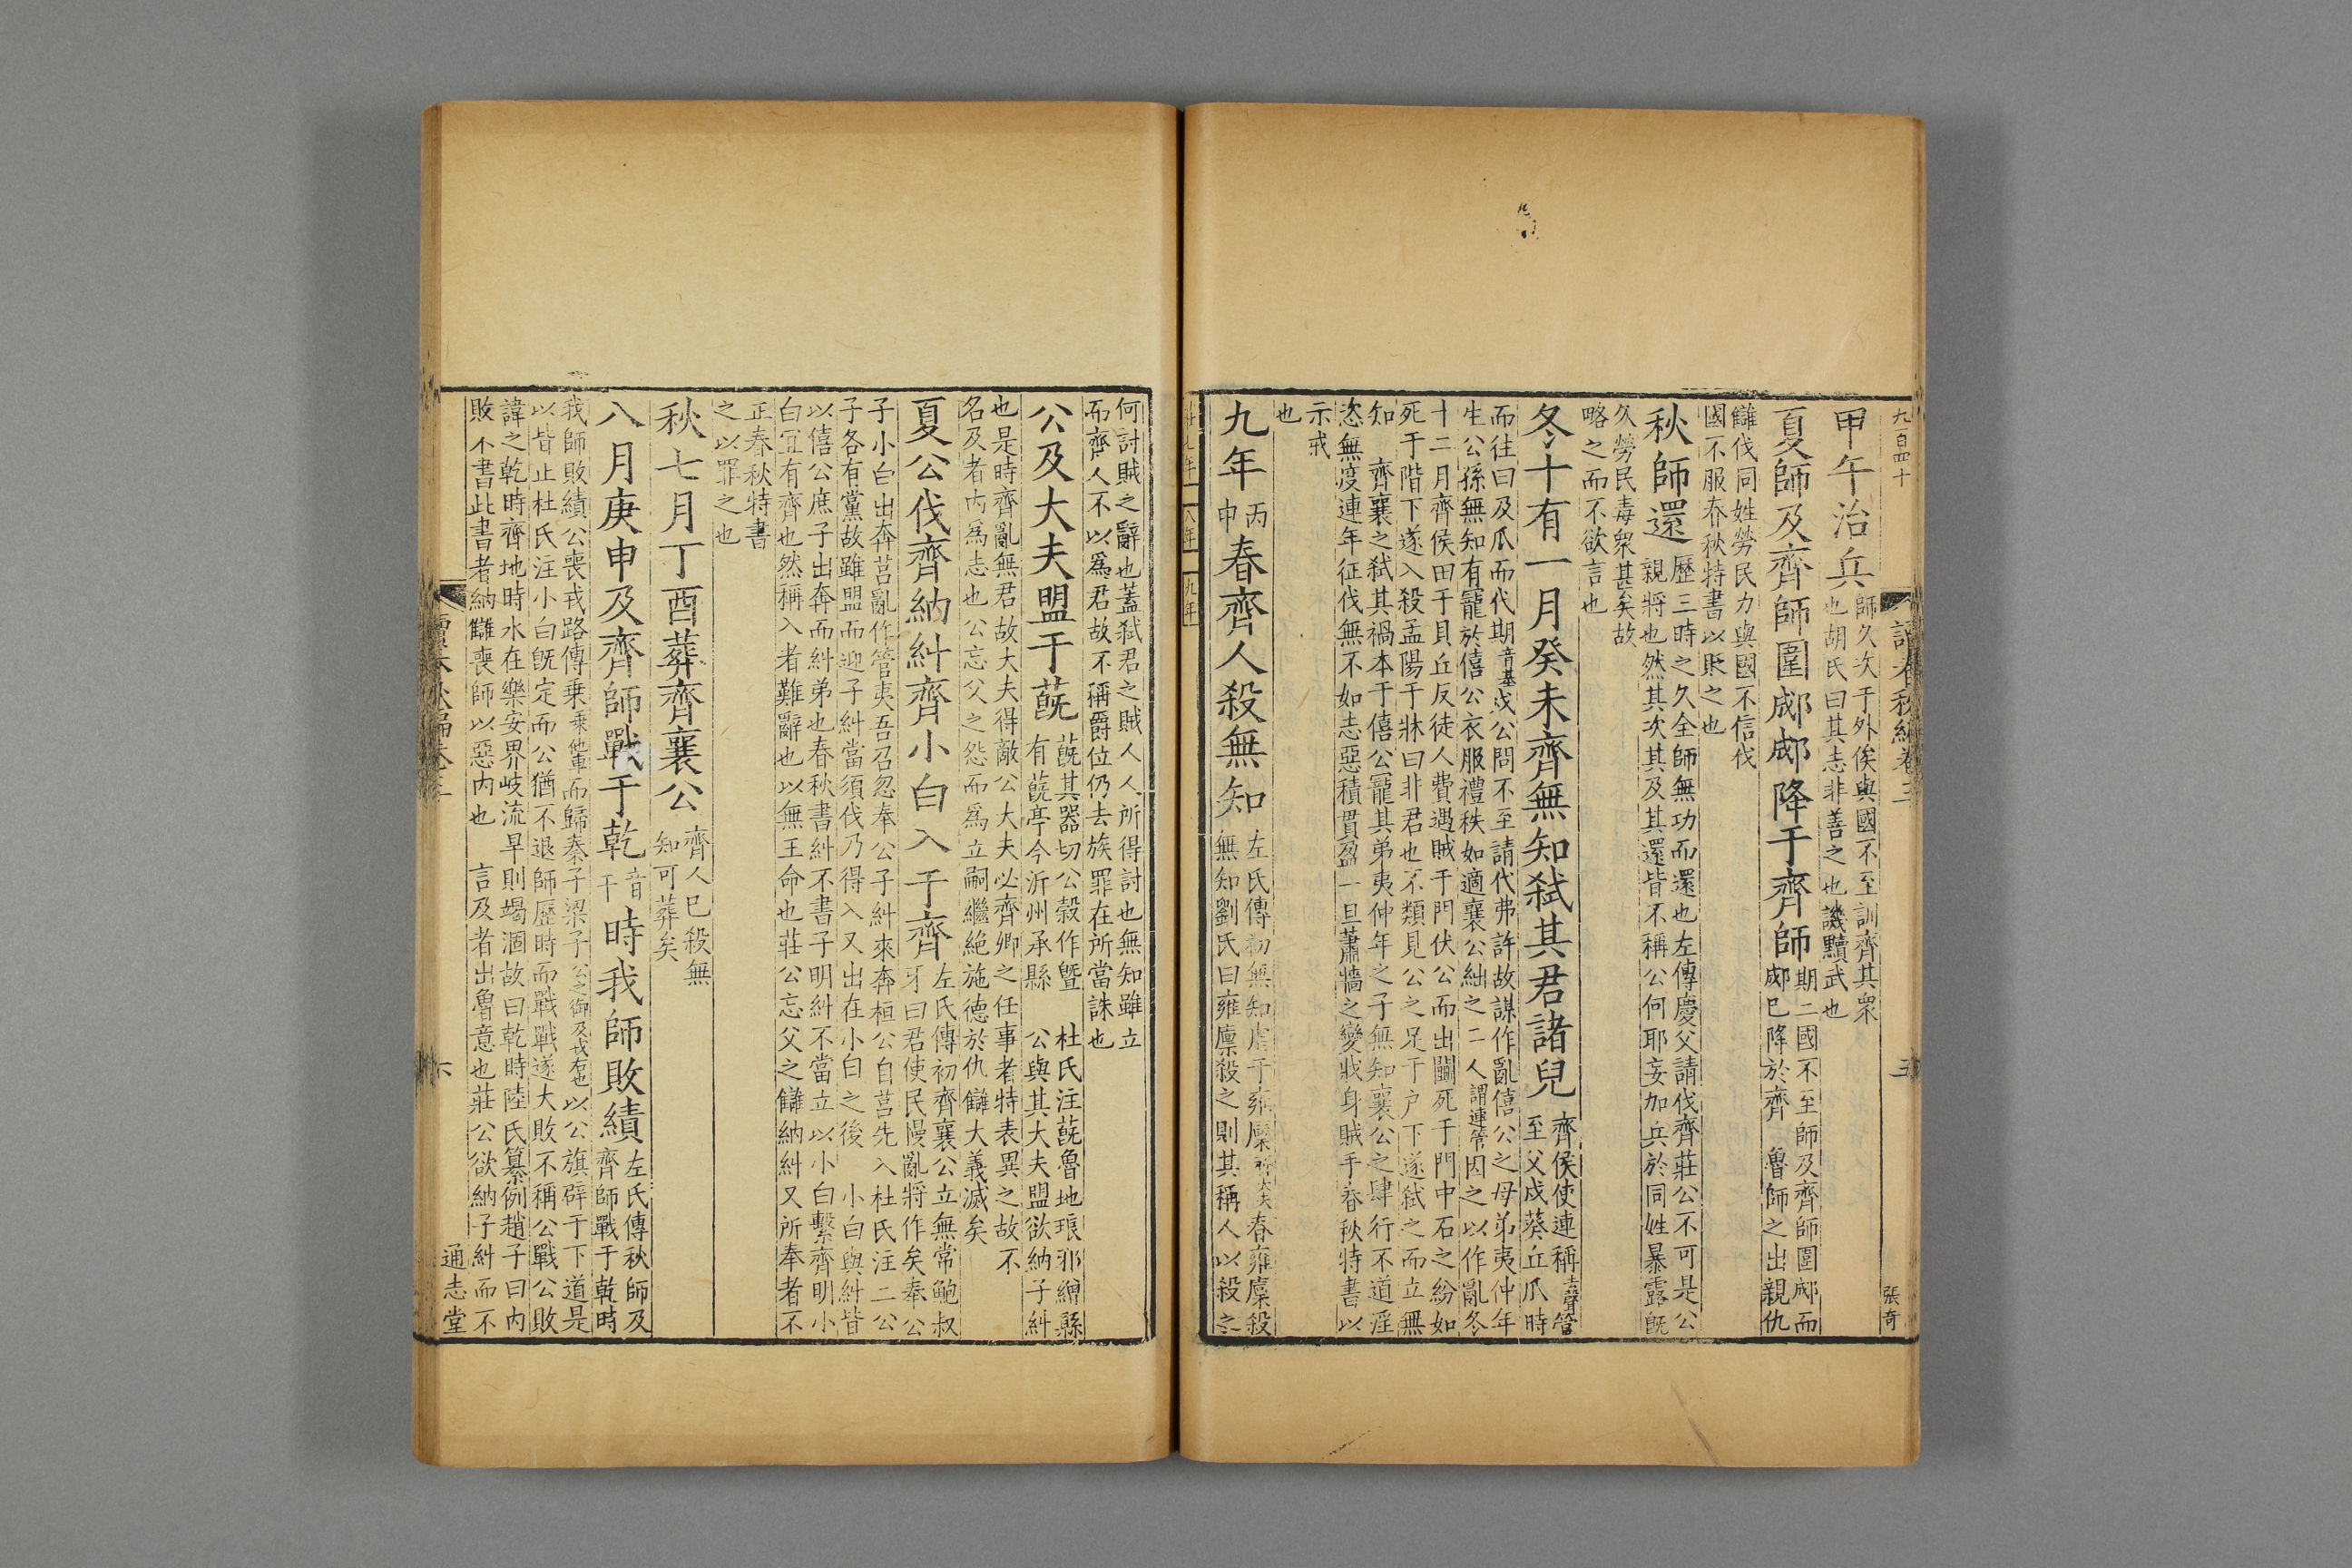 九百四十
讀春秋編卷三
五
張奇
甲午治兵
師久次于外俟與國不至訓齊其衆
也胡氏曰其志非善之也譏黷武也
夏師及齊師圍郕郕降于齊師
期二國不至師及齊師圍郕而
郕已降於齊 魯師之出親仇
讎伐同姓勞民力與國不信伐
國不服春秋特書以貶之也
秋師還
歷三時之久全師無功而還也左傳慶父請伐齊莊公不可是公
親將也然其次其及其還皆不稱公何耶妄加兵於同姓暴露旣
久勞民毒衆甚矣故
略之而不欲言也
冬十有一月癸未齊無知弑其君諸兒
齊侯使連稱去聲管
至父戍葵丘瓜時
而往曰及瓜而代期音基戍公問不至請代弗許故謀作亂僖公之母弟夷仲年
生公孫無知有寵於僖公衣服禮秩如適襄公絀之二人謂連管因之以作亂冬
十二月齊侯田于貝丘反徒人費遇賊于門伏公而出鬬死于門中石之紛如
死于階下遂入殺孟陽于牀曰非君也不類見公之足于户下遂弑之而立無
知 齊襄之弑其禍本于僖公寵其弟夷仲年之子無知襄公之肆行不道淫
恣無度連年征伐無不如志惡積貫盈一旦蕭牆之變戕身賊手春秋特書以
示戒
也
九年
丙
申
春齊人殺無知
左氏傳初無知虐于雍廩齊大夫春雍廩殺
無知劉氏曰雍廩殺之則其稱人以殺之
莊七年 八年 九年
何討賊之辭也蓋弑君之賊人人所得討也無知雖立
而齊人不以爲君故不稱爵位仍去族罪在所當誅也
公及大夫盟于蔇
蔇其器切公穀作暨 杜氏注蔇魯地琅邪繒縣
有蔇亭今沂州承縣 公與其大夫盟欲納子糾
也是時齊亂無君故大夫得敵公大夫必齊卿之任事者特表異之故不
名及者内爲志也公忘父之怨而爲立嗣繼絶施德於仇讎大義滅矣
夏公伐齊納糾齊小白入于齊
左氏傳初齊襄公立無常鮑叔
牙曰君使民慢亂將作矣奉公
子小白出奔莒亂作管夷吾召忽奉公子糾來奔桓公自莒先入杜氏注二公
子各有黨故雖盟而迎子糾當須伐乃得入又出在小白之後 小白與糾皆
以僖公庶子出奔而糾弟也春秋書糾不書子明糾不當立以小白繫齊明小
白宜有齊也然稱入者難辭也以無王命也莊公忘父之讎納糾又所奉者不
正春秋特書
之以罪之也
秋七月丁酉葬齊襄公
齊人已殺無
知可葬矣
八月庚申及齊師戰于乾音干時我師敗績
左氏傳秋師及
齊師戰于乾時
我師敗績公喪戎路傳乘乘他車而歸秦子梁子公之御及戎右也以公旗辟于下道是
以皆止杜氏注小白旣定而公猶不退師歷時而戰戰遂大敗不稱公戰公敗
諱之乾時齊地時水在樂安界岐流旱則竭涸故曰乾時陸氏纂例趙子曰内
敗不書此書者納讎喪師以惡内也 言及者出魯意也莊公欲納子糾而不
讀春秋編卷三
六
通志堂